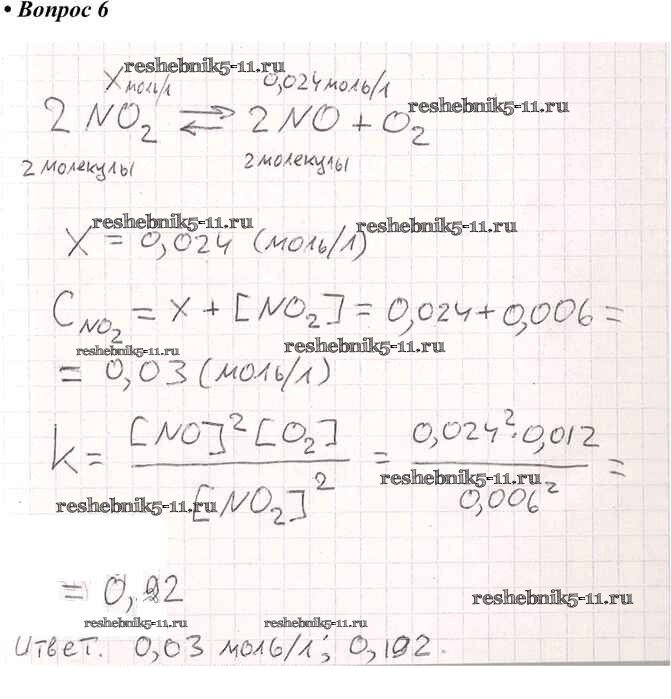 • Вопрос 6
reshebnik5-11.ru
X моль/л 0,024 моль/л
reshebnik5-11.ru
2 NO₂ ⇌ 2 NO + O₂
2 молекулы 2 молекулы
reshebnik5-11.ru reshebnik5-11.ru
X = 0,024 (моль/л)
C NO₂ = X + [NO₂] = 0,024 + 0,006 =
reshebnik5-11.ru reshebnik5-11.ru
= 0,03 (моль/л)
K = [NO]² [O₂] / [NO₂]² = 0,024² · 0,012 / 0,006² =
reshebnik5-11.ru reshebnik5-11.ru
reshebnik5-11.ru
reshebnik5-11.ru reshebnik5-11.ru
Ответ. 0,03 моль/л; 0,192.